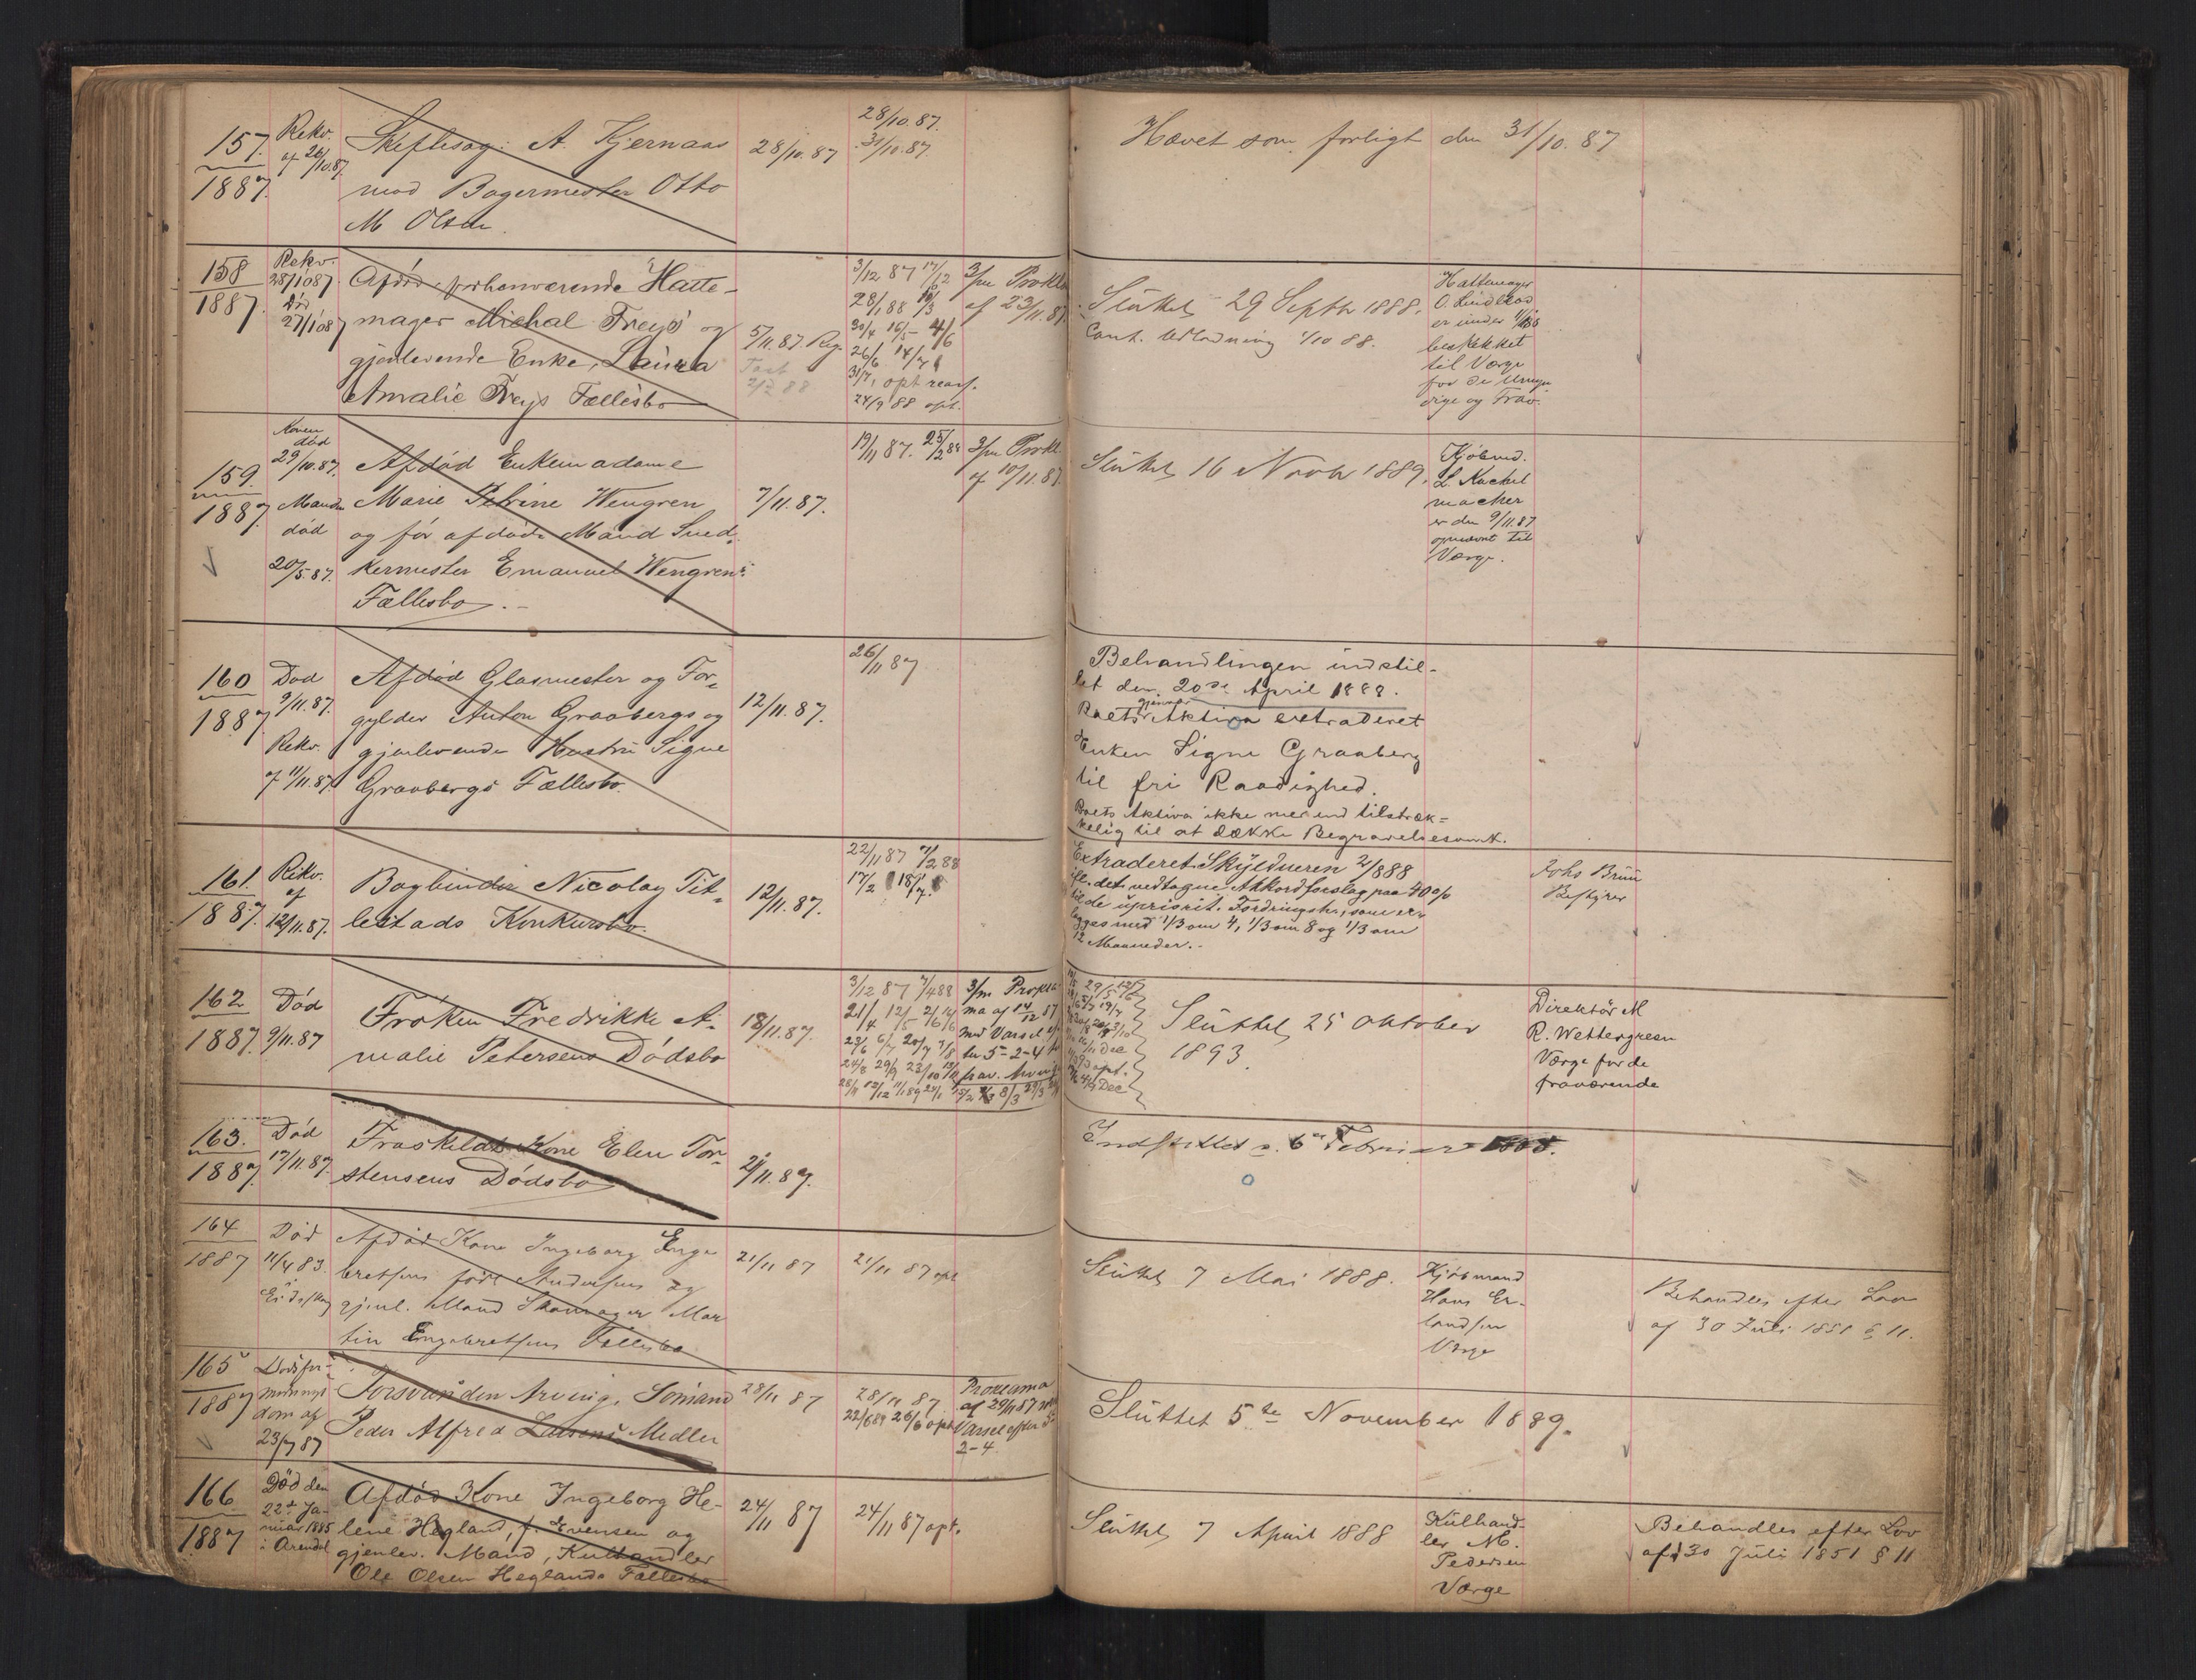 157.
1887.
Rekv.
af 26/10.87
Skiftesag: A. Kjernaas
mod Bagermester Otto
M Olsen.
28/10.87
28/10.87.
31/10.87.
Hævet som forligt den 31/10.87
158
1887.
Rekv.
28/10 87.
Død
27/10 87
Afdød, forhenværende Hatte-
mager Michal Freys og
gjenlevende Enke, Laura
Amalie Freys Fællesbo
5/11.87.
3/12 87 17/12
28/1 88 10/3
30/4 16/5 4/6
26/6 14/7
31/7, opt reass.
24/9 88 opt.
3/m Prokl.
af 23/11.87.
Sluttet 29 Septbr 1888.
Cont. Udlodning 1/10 88.
Hattemager
O. Lindblad
er under
beskikket
til Værge
for de Umyn
dige og Frav.
159.
1887
Konen
død
29/10.87.
Manden
død
20/5.87.
Afdød Enkemadame
Marie Petrine Wengren
og før afdøde Mand Sned-
kermester Emanuel Wengrens
Fællesbo.
7/11.87.
19/11 87. 25/2 88
3/m Prokl.
af 10/11.87.
Sluttet 16 Novbr 1889.
Kjøbmd.
L. Kachel
macher
er den 9/11.87
opnævnt til
Værge.
160
1887
Død
9/11.87.
Rekv.
af 11/11.87
Afdød Glasmester og For-
gylder Anton Graabergs og
gjenlevende Hustru Signe
Graabergs Fællesbo.
12/11.87.
26/11 87
Behandlingen indstil-
let den 20de April 1888.
Boets Aktiva extraderet
Enken Signe Graaberg
til fri Raadighed.
Boets Aktiva ikke mer end tilstræk-
kelig til at dække Begravelsesomk.
161.
1887.
Rekv.
af
12/11.87.
Bogbinder Nicolay Tit-
lestads Konkursbo.
12/11.87.
22/11 87 7/2 88
17/2
Extraderet Skyldneren 2/888
ifl. det vedtagne Akkordforslag paa 40 o/o
til de upriorit. Fordringsh., som er-
lægges med 1/3 om 4, 1/3 om 8 og 1/3 om
12 Maaneder.
Johs Bruu
Bestyrer
162
1887.
Død
9/11.87
Frøken Fredrikke A-
malie Petersens Dødsbo
18/11.87.
3/12 87 7/4 88
3/m Prokla-
ma af 14/12 87
med Varsel ef-
ter 5-2-4 til
frav. Arving
Sluttet 25 Oktober
1893.
Direktør M
R. Wettergreen
Værge for de
fraværende
163.
1887.
Død
17/11.87.
Fraskildt Kone Elen Tor-
stensens Dødsbo
21/11.87.
Indstillet d. 6te Februar 1888.
164
1887
Død
11/4 83.
Afdød Kone Ingeborg Enge
bretsens født Andersens og
gjenl. Mand Skomager Mar
tin Engebretsens Fællesbo
21/11 87
21/11 87 opt
Sluttet 7 Mai 1888.
Kjøbmand
Hans Er-
landsen
Værge
Behandles efter Lov
af 30 Juli 1851 § 11.
165
1887
Dødsfor-
modnings
dom af
23/7 87
Forsvunden Arving, Sømand
Peder Alfred Larsens Medler
28/11 87
28/11 87
22/6 89 26/6 opt
Proklama
af 29/11 87 med
Varsel efter 5-
2-4.
Sluttet 5te November 1889.
166
1887
Død den
22de Ja-
nuar 1885
i Arendal
Afdød Kone Ingeborg He-
lene Hegland, f. Evensen og
gjenlev. Mand, Kulhandler
Ole Olsen Heglands Fællesbo
24/11 87
24/11 87 opt.
Sluttet 7 April 1888
Kulhand-
ler M.
Pedersen
Værge
Behandles efter Lov
af 30 Juli 1851 § 11